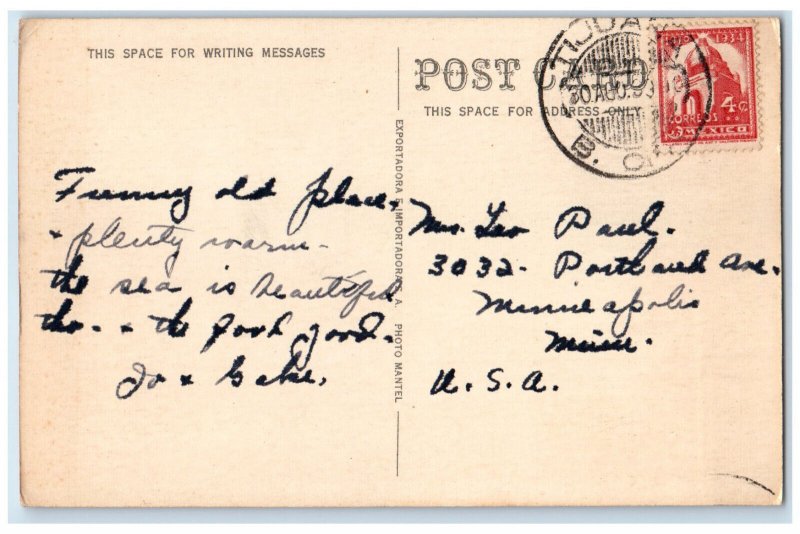 THIS SPACE FOR WRITING MESSAGES
POST CARD
THIS SPACE FOR ADDRESS ONLY
TIJUANA
30 AUG. 93
B. CFA
1934
4 ¢
CORREOS
MEXICO
EXPORTADORA E IMPORTADORA S. A. PHOTO MANTEL
Funny old place,
+ plenty warm -
the sea is beautiful
tho - + the food good.
Jo + Gabe.
Mrs. Leo Paul.
3032 - Portland Ave.
Minneapolis
Minn.
U. S. A.